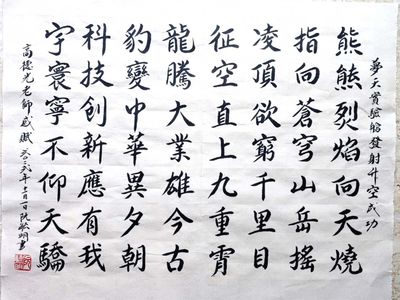 夢天實驗艙發射升空成功
熊熊烈焰向天燒
指向蒼穹山岳搖
凌頂欲窮千里目
征空直上九重霄
龍騰大業雄今古
豹變中華異夕朝
科技创新應有我
宇寰寧不仰天驕
高德光老師感賦